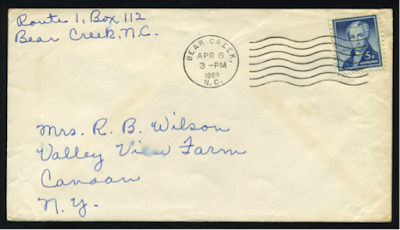 Route 1, Box 112
Bear Creek, N.C.
BEAR CREEK,
APR 6
3-PM
N.C.
5¢
Mrs. R. B. Wilson
Valley View Farm
Canaan
N.Y.